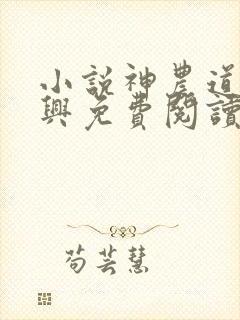 小說神農道
興免費閱讀
苟芸慧